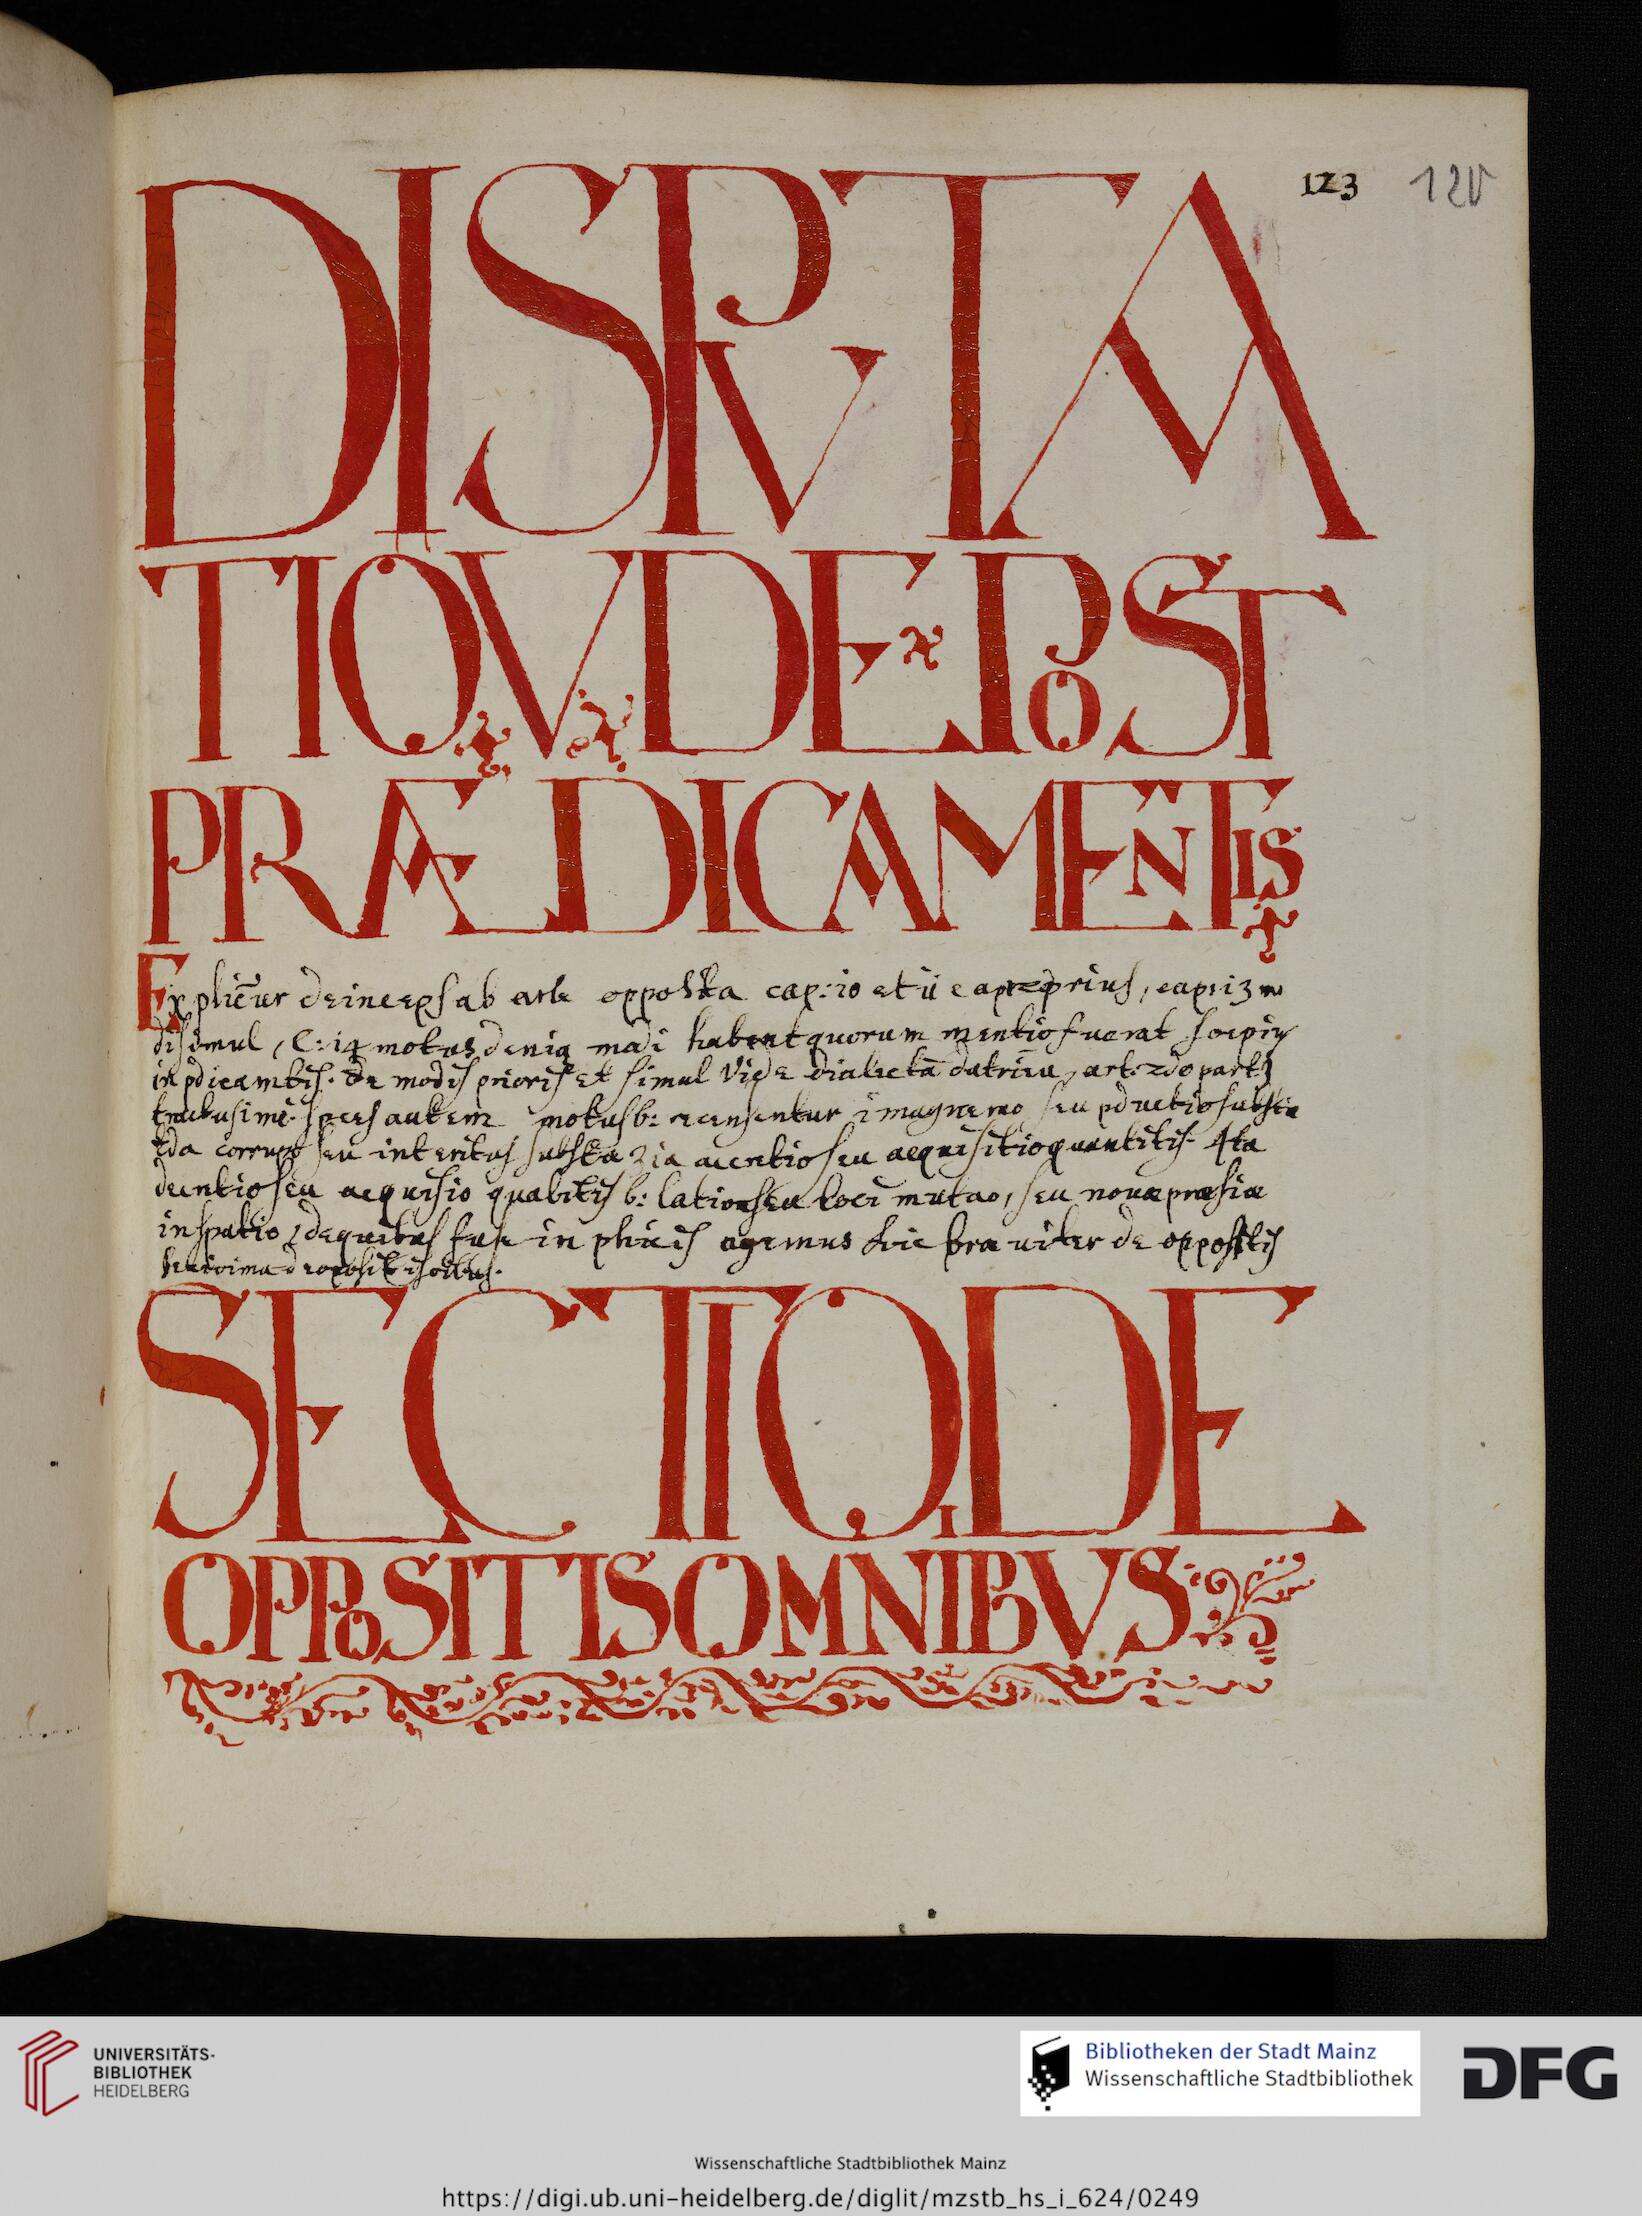 123 120
DISPVTA
TIO V DE POST
PRÆDICAMENTIS
Explicur deinceps ab arte opposita cap: 10 et ii cap prius, cap: 13 mo
di simul, C: 14 motus deniq modi habent quorum mentio fuerat soepiy
in pdicamtis. De modis prioris et simul Vide dialecta art: 2do part
species autem motus b: recensentur imagnemo seu pductio substa
corrup seu interitus substa seu aequisitio quantitis. 4ta
seu aequisio qualitis b: latio seu loci mutao, seu nova præsia
in spatio, de quibus fuse in phicis agemus hic breviter de oppositis
SECTIO I DE
OPPOSITIS OMNIBVS
UNIVERSITÄTS-
BIBLIOTHEK
HEIDELBERG
Bibliotheken der Stadt Mainz
Wissenschaftliche Stadtbibliothek
DFG
Wissenschaftliche Stadtbibliothek Mainz
https://digi.ub.uni-heidelberg.de/diglit/mzstb_hs_i_624/0249